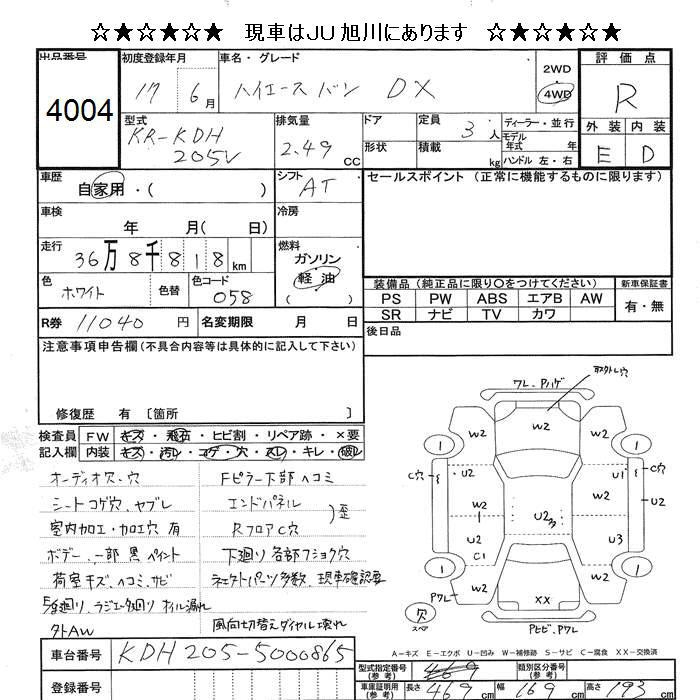 ☆★☆★☆★ 現車はJU旭川にあります ☆★☆★☆★
出品番号 初度登録年月 車名・グレード 評価点
4004 17 6月 ハイエースバン DX 2WD 4WD R
型式 排気量 ドア 定員 3人 ディーラー・並行 外装 内装
KR-KDH 205V 2.49 CC 形状 積載 kg モデル年式 年 ハンドル 左・右 E D
車歴 自家用・( ) シフト AT セールスポイント (正常に機能するものに限ります)
車検 年 月( 日) 冷房
走行 36万8千818 km 燃料 ガソリン 軽油 ( )
色 ホワイト 色替 色コード 058
装備品 (純正品に限り○をつけてください) 新車保証書
PS PW ABS エアB AW 有・無
SR ナビ TV カワ
R券 11040 円 名変期限 月 日 後日品
注意事項申告欄(不具合内容等は具体的に記入して下さい)
修復歴 有 〔箇所 〕
検査員 FW キズ・飛石・ヒビ割・リペア跡・×要
記入欄 内装 キズ・汚レ・コゲ・穴・スレ・キレ・破レ
オーディオ欠・穴 Fピラー下部ヘコミ
シートコゲ穴、ヤブレ エンドパネル
室内加工・加工穴 有 RフロアC穴 )歪
ボデー 一部 黒ペイント 下廻り各部フショク穴
荷室キズ、ヘコミ、サビ ネェクトパーツ多数、現車確認要
廻り、ラジエータ廻りオイル漏れ
外AW 風向切替えダイヤル壊れ
取外し穴
ワレ、Pハゲ
W2
W2 W2
1 1
C穴 U2 W2 W2 U1 C穴
W2 U2 W2 U2
U2 U3
C1
W2 W2
1 1
Pワレ XX
欠
スペア PヒビPワレ
A-キズ E-エクボ U-凹み W-補修跡 S-サビ C-腐食 XX-交換済
車台番号 KDH 205-5000865
登録番号
型式指定番号(参考) 469 類別区分番号(参考)
車庫証明用(参考) 長さ 469 cm 幅 169 cm 高さ 193 cm